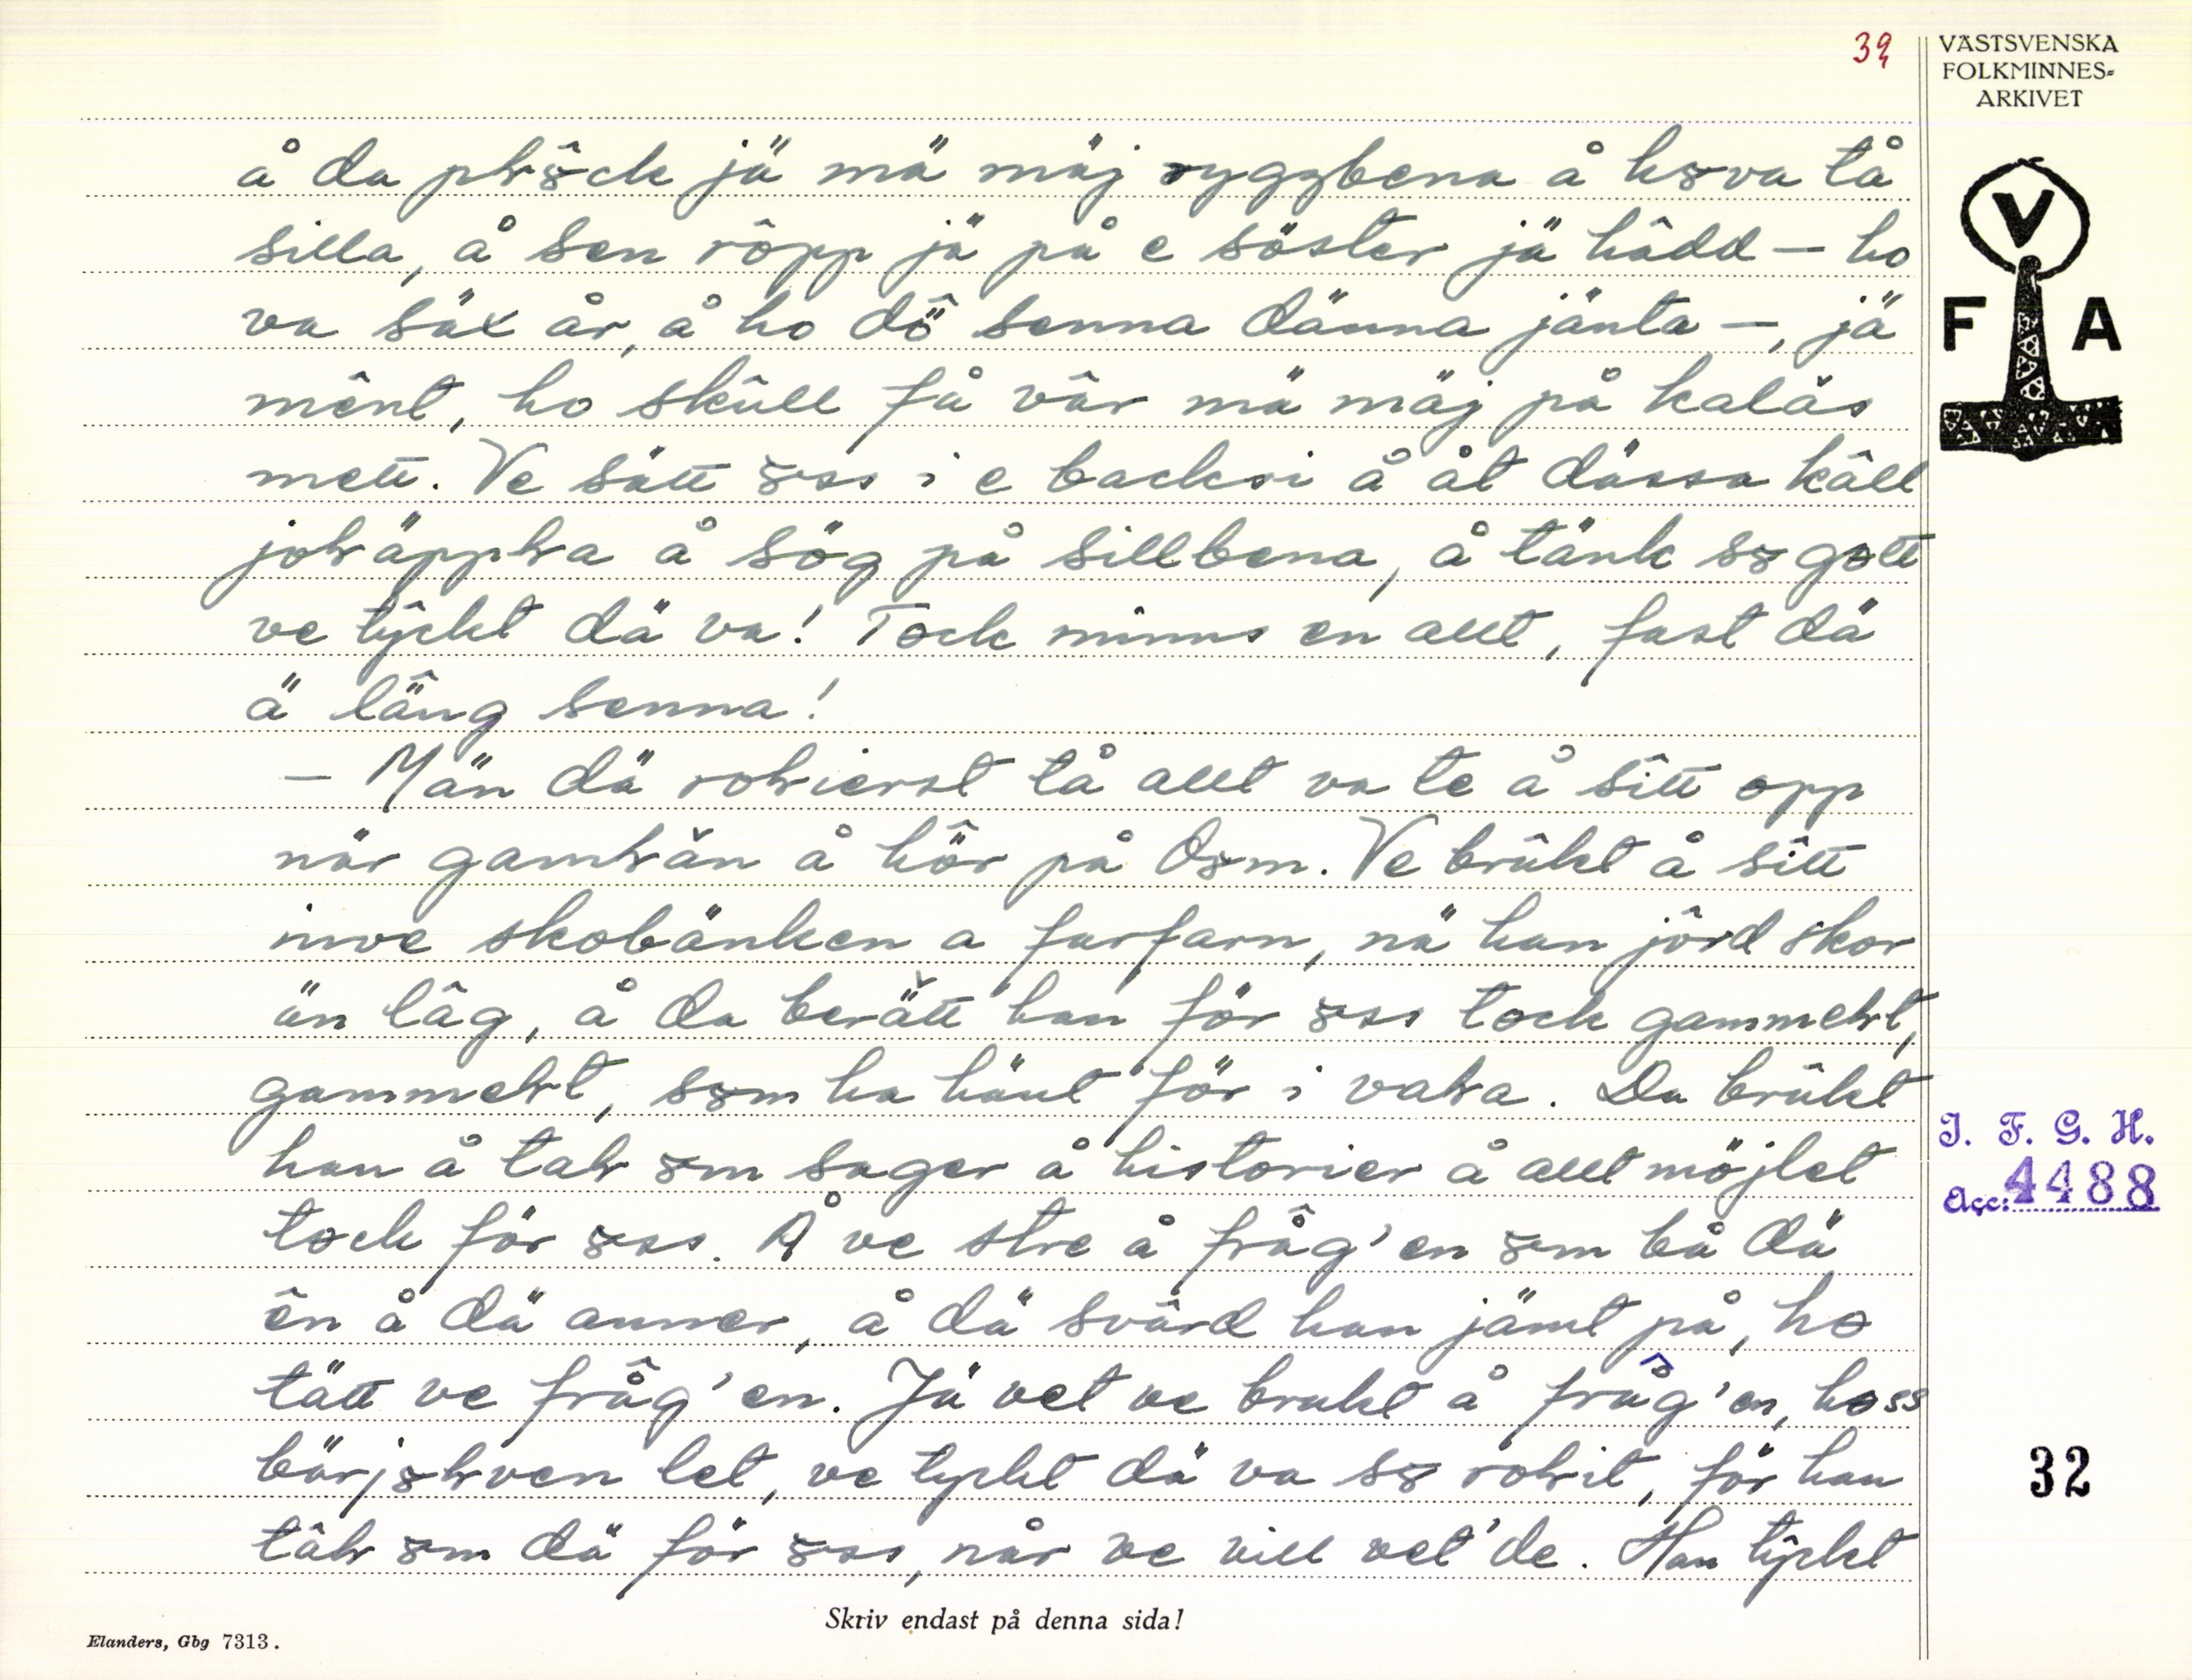 39
VÄSTSVENSKA
FOLKMINNES-
ARKIVET
V
F A
å da phôck jä mä mäj ryggbena å hova tå
silla, å sen rôpp jä på e söster jä hâdd — ho
va säx år, å ho dô̈ senna dänna jänta —, jä
mênt, ho skûll få vâr mä mäj på kaläs
mett. Ve sätt oss i e backsi å åt dässa kâll
johäppha å sög på sillbena, å tänk so gott
ve tŷckt dä va! Tock minns en allt, fast dä
ä läng senna!
— Män dä rohierst tå allt va te å sîtt opp
när gamhǎn å hör på Osm. Ve brûkt å sîtt
inve skobänken a farfarn, nä han jôrd skor
än lâg, å da berätt han för oss tock gammeht,
gammeht, som ha hänt för i vaha. Da brûkt
han å tah om sager å historier å allt möjlet
tock för oss. Å ve stre å fråg'en om bå dä
ên å dä anner, å dä svârd han jämt på, ho
tätt ve fråg'en. Jä vet ve brukt å fråg'en, hoss
bärjshven let, ve tyckt dä va so rohit, för han
tâh om dä för oss, när ve vill vet'de. Han tŷckt
I. F. G. H.
Acc: 4488
32
Skriv endast på denna sida!
Elanders, Gbg 7313.